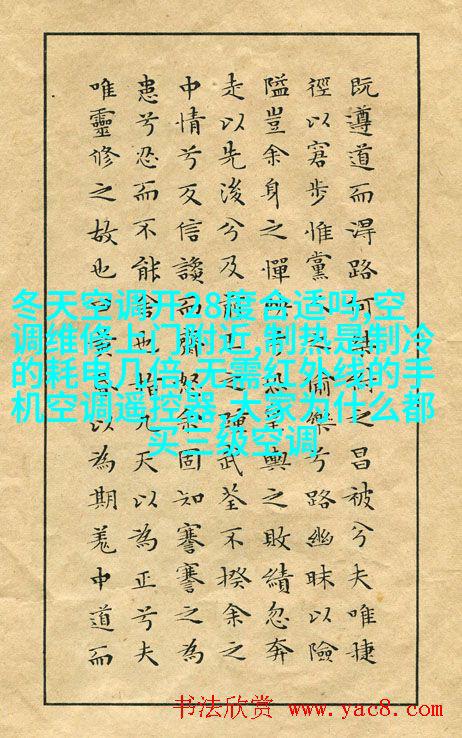 既遵道而淂路何桀紂之昌被兮夫唯捷
徑以窘步惟黨人之偷樂兮路幽昧以險
隘豈余身之憚殃兮恐皇輿之敗績忽奔
走以先後兮及前王之踵武荃不揆余之
中情兮反信讒而齌怒余固知謇謇之為
患兮忍而不能舍也指九天以為正兮夫
唯靈修之故也曰黃昏以為期羌中道而
冬天空调开18度合适吗,空
调维修上门附近,制热是制冷
的耗电几倍,无需红外线的手
机空调遥控器,大家为什么都
买三级空调
书法欣赏 www.yac8.com